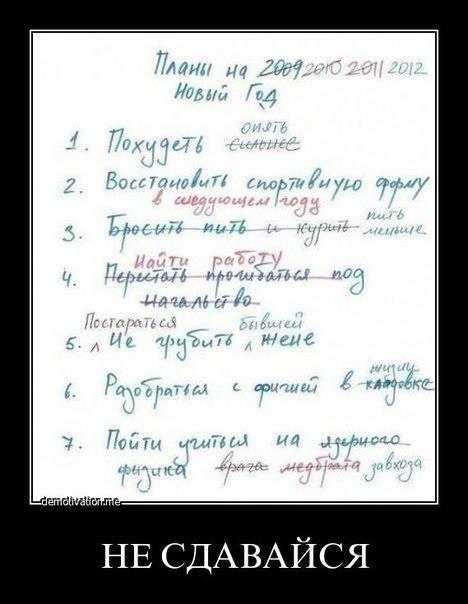 Планы на 2009 2010 2011 2012
Новый Год
опять
1. Похудеть сильнее
2. Восстановить спортивную форму
в следующем году
пить
3. Бросить пить и курить меньше
Найти работу
4. Перестать прогибаться под
начальство
Постараться бывшей
5. Не грубить жене
жизни
6. Разобраться с фигнёй в кладовке
7. Пойти учиться на ядерного
физика врача медбрата завхоза
demotivation.me
НЕ СДАВАЙСЯ